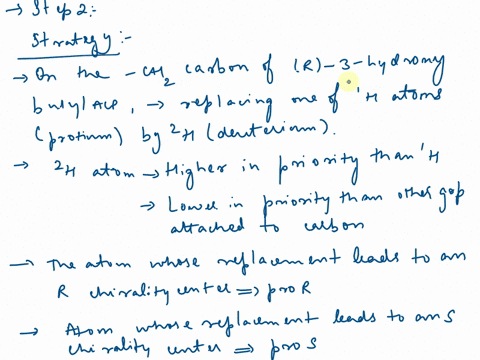 → Step 2:-
Strategy:-
→ On the -CH2 carbon of (R)-3-hydroxy
butyl ACP, → replacing one of ¹H atoms
(protium) by ²H (deuterium).
→ ²H atom → Higher in priority than ¹H
→ Lower in priority than other gop
attached to carbon
→ The atom whose replacement leads to an
R chirality center ⟹ pro R
→ Atom whose replacement leads to an S
chirality center ⟹ pro S